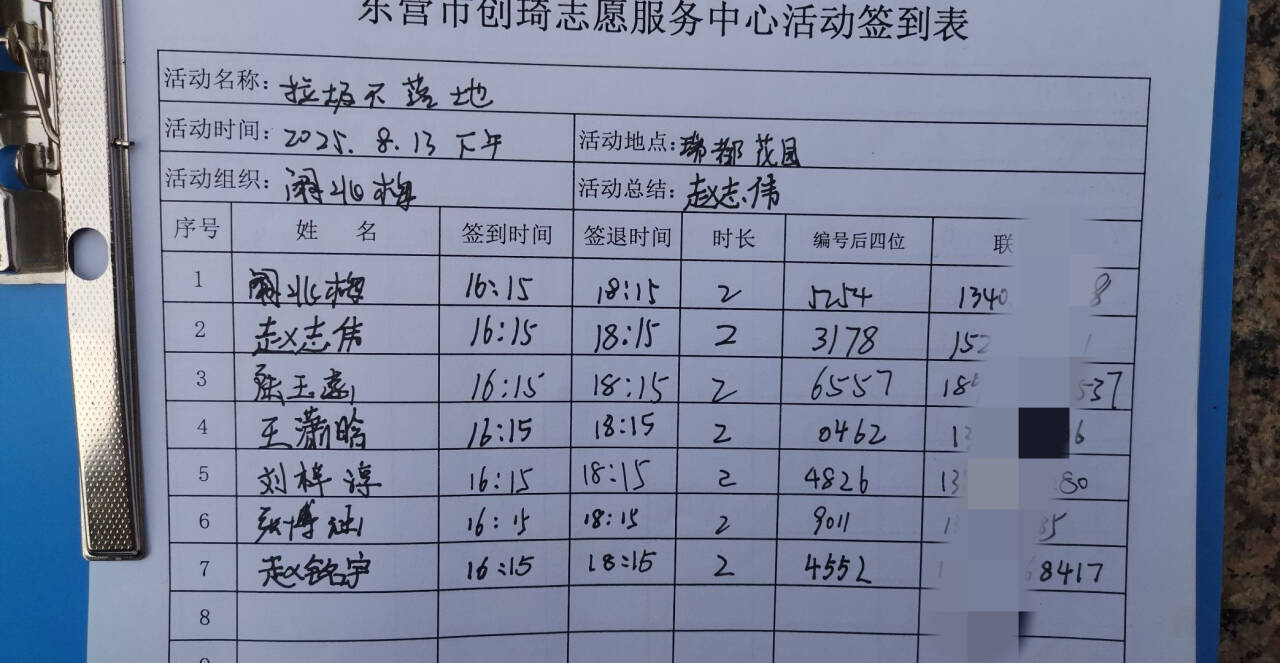 东营市创琦志愿服务中心活动签到表
活动名称: 垃圾不落地
活动时间: 2025.8.13 下午 活动地点: 瑞都花园
活动组织: 闫北梅 活动总结: 赵志伟
序号 姓 名 签到时间 签退时间 时长 编号后四位 联
1 北梅 16:15 18:15 2 5254 1340 8
2 赵志伟 16:15 18:15 2 3178 152 1
3 张玉 16:15 18:15 2 6557 18 537
4 王潇晗 16:15 18:15 2 0462 13 6
5 刘梓淳 16:15 18:15 2 4826 13 80
6 张博涵 16:15 18:15 2 9011 1 35
7 赵铭宇 16:15 18:15 2 4552 1 68417
8